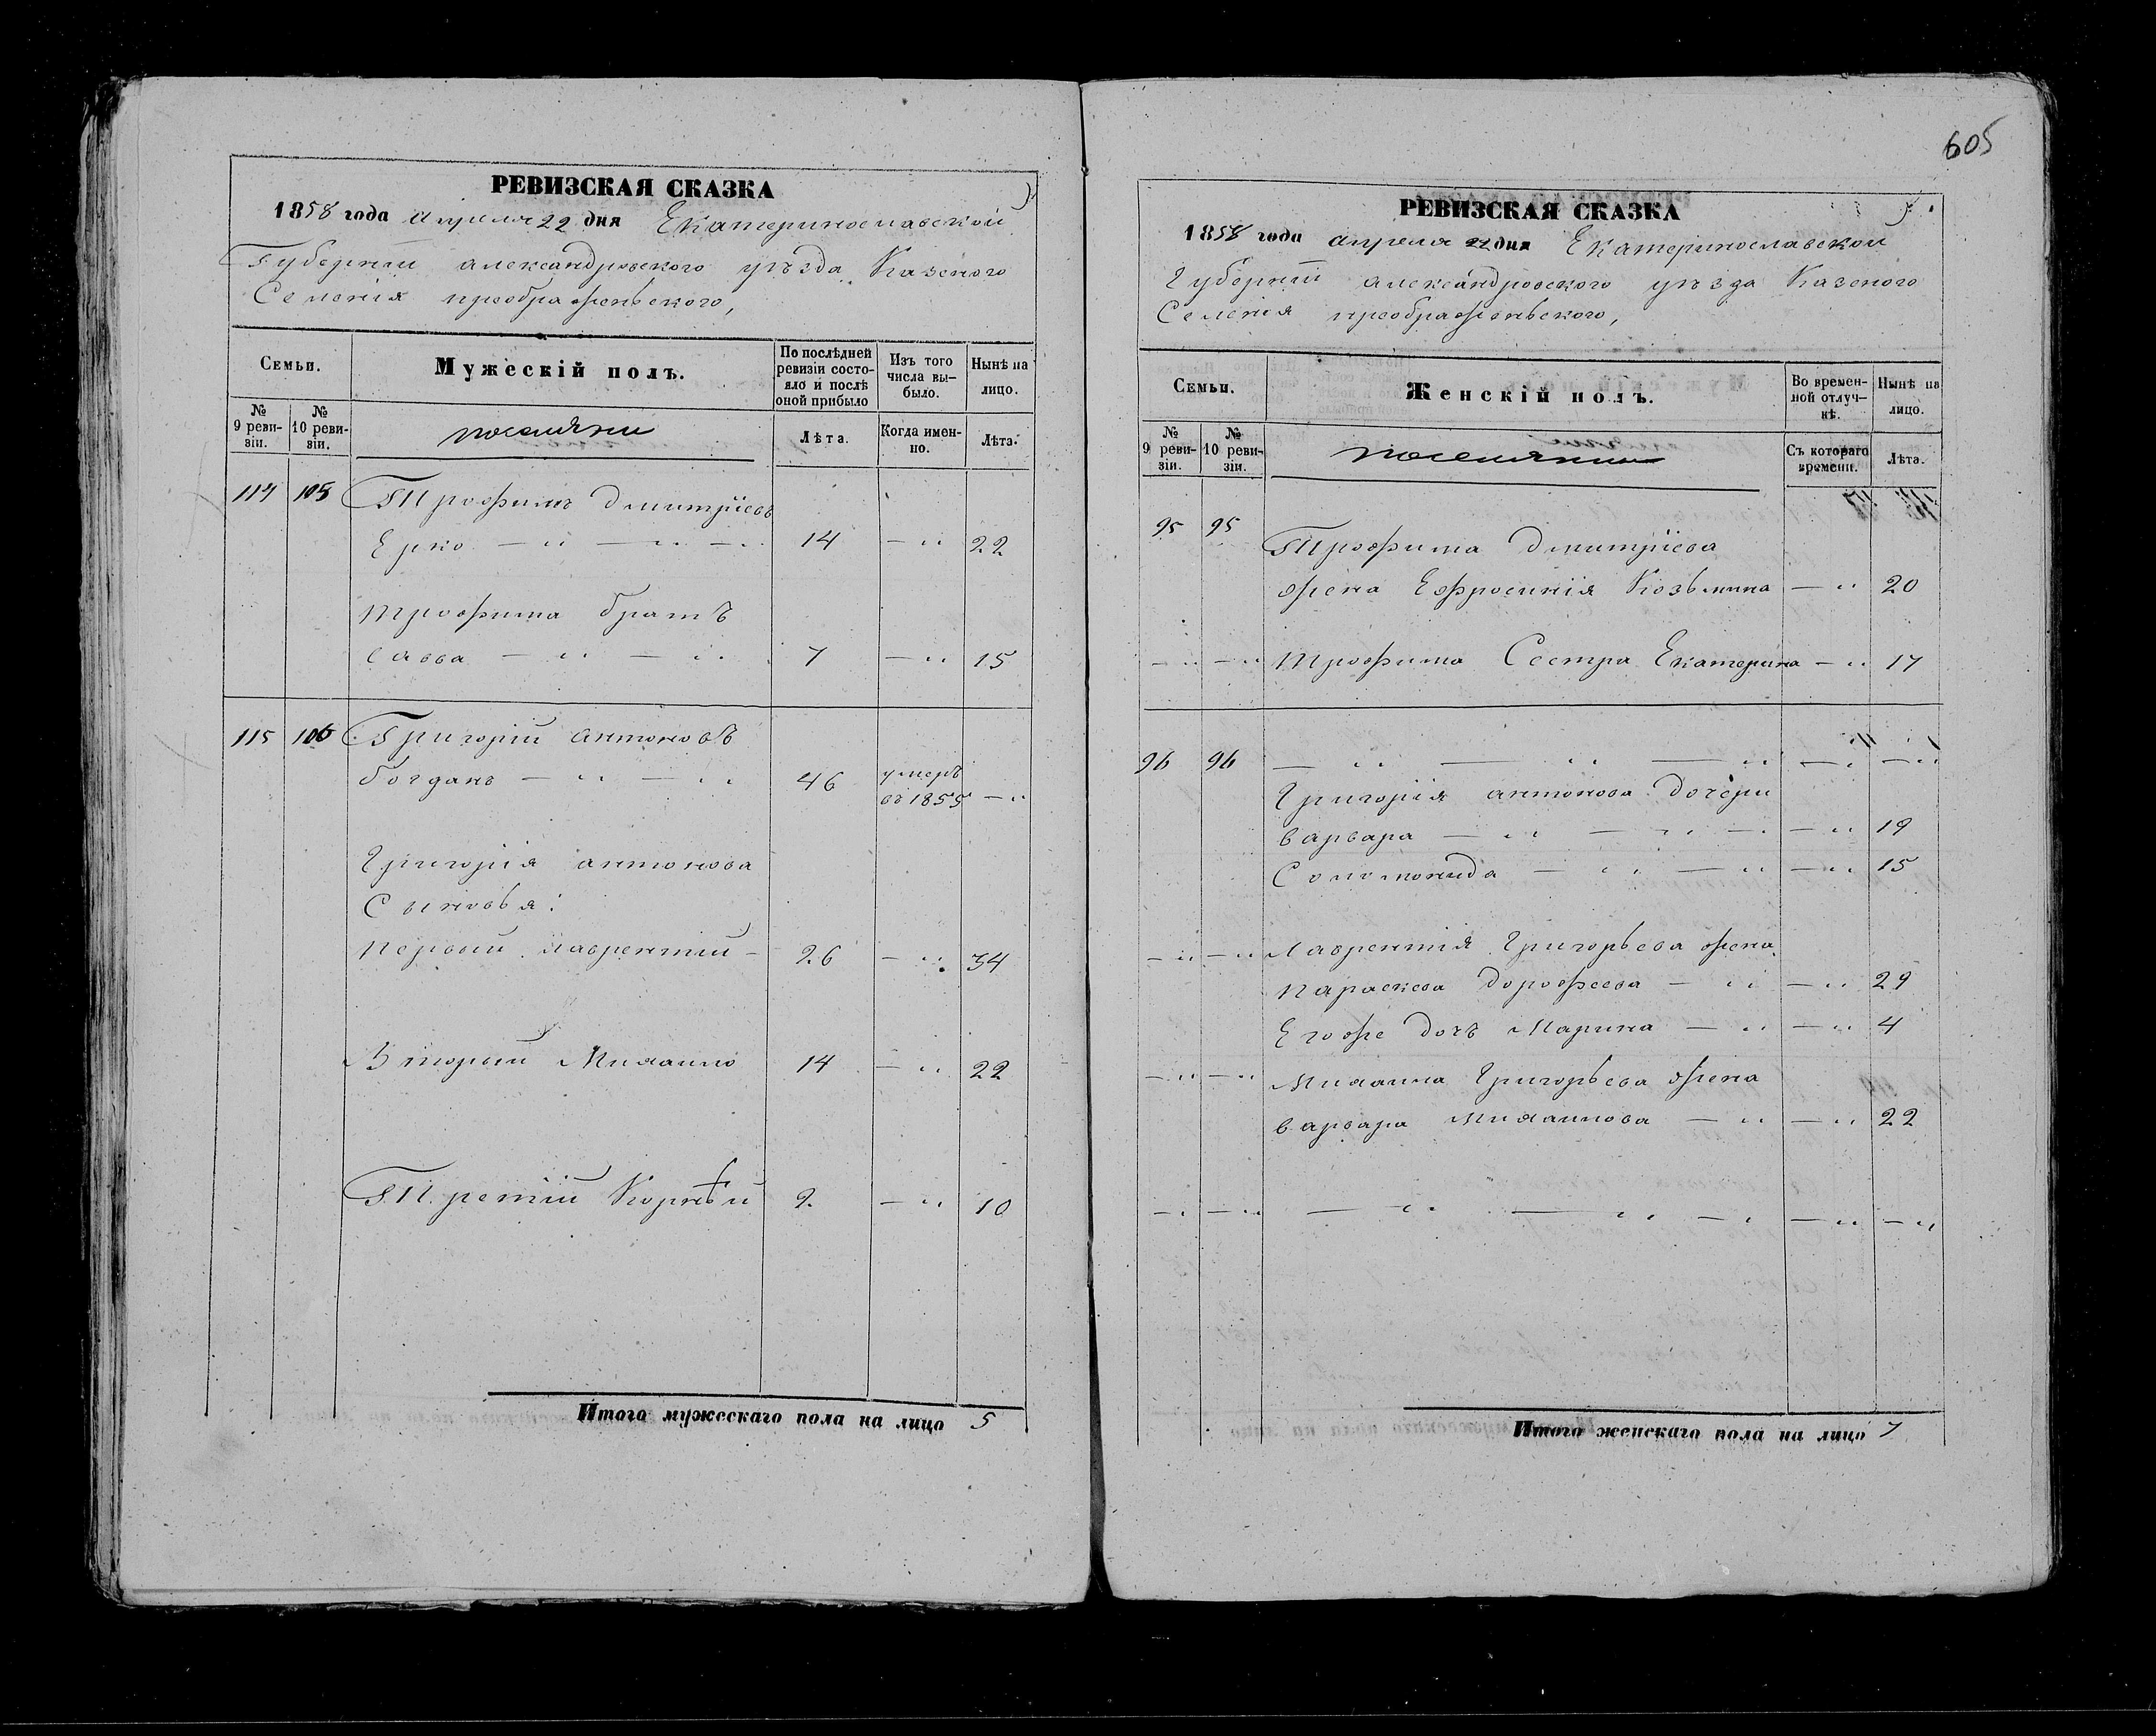 605
РЕВИЗСКАЯ СКАЗКА
1858 года апреля 22 дня Екатеринославской
Губернїи александровского уѣзда Казеного
Селенія преображеньского,
Семьи.
Мужескій полъ.
По послѣдней ревизіи состояло и послѣ оной прибыло
Изъ того числа выбыло.
Нынѣ на лицо.
№ 9 ревизіи.
№ 10 ревизіи.
поселяни
Лѣта.
Когда именно.
Лѣта.
114 105 Трофимъ дмитрїевъ
Ерко — " — " — " 14 — " 22
трофима братъ
савва — " — " 7 — " 15
115 106 Григорій антоновъ
богданъ — " — " 46 умеръ въ 1855 — "
Григорія антонова
Сыновья:
первый лаврентий - 26 — " 34
Вторый Михаило 14 — " 22
Третїй Корнѣй 2 — " 10
Итого мужескаго пола на лицо 5
РЕВИЗСКАЯ СКАЗКА
1858 года апреля 22 дня Екатеринославской
Губернїи александровского уѣзда Казеного
Селенія преображеньского,
Семьи.
Женскій полъ.
Во временной отлучкѣ.
Нынѣ на лицо.
№ 9 ревизіи.
№ 10 ревизіи.
поселянки
Съ котораго времени.
Лѣта.
95 95 Трофима дмитріева
жена Ефросинія Козьмина — " 20
— " — " трофима Сестра Екатерина — " 17
96 96 — " — " — " — " — "
Григорія антонова дочери
варвара — " — " — " — " 19
Соломонида — " — " — " 15
— " — " Лаврентія Григорьева жена
параскева дорофеева — " — " 29
Егоже дочъ Марина — " — " 4
— " — " Михаила Григорьева жена
варвара михаилова — " — " 22
— " — " — " — " — " — " — "
Итого женскаго пола на лицо 7